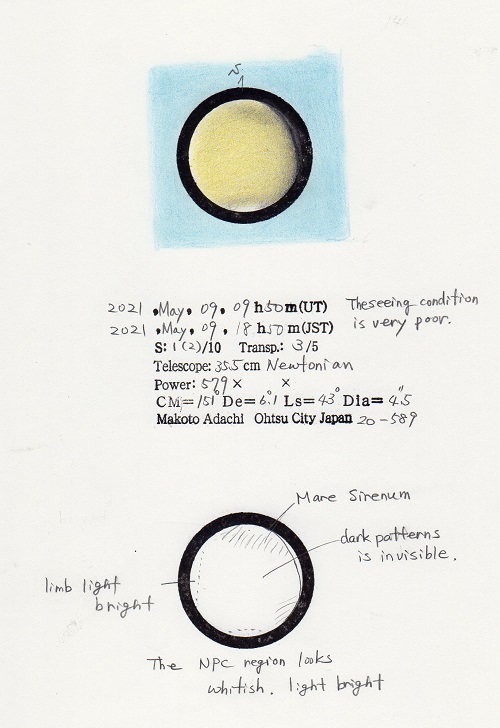 S
2021 May. 09. 09 h 50 m (UT) The seeing condition
2021 May. 09. 18 h 50 m (JST) is very poor.
S: 1(2)/10 Transp.: 3/5
Telescope: 35.5 cm Newtonian
Power: 579 × ×
CM=151° De=6.1° Ls=43° Dia=4.5"
Makoto Adachi Ohtsu City Japan 20-589
Mare Sirenum
dark patterns
is invisible.
limb light
bright
The NPC region looks
whitish. light bright